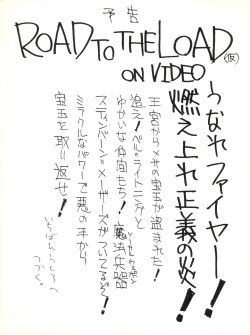 予告
ROAD TO THE LOAD(仮)
ON VIDEO
うなれファイヤー!!
燃え上れ正義の炎!!
王宮からメサの宝玉が盗まれた!
追え!ベル=ライトニングと
ゆかいな仲間たち!魔法兵器
スティンバーン=メーザーズがついてるぞ!
ミラクルなパワーで悪の手から
宝玉を取り返せ!
つづく。